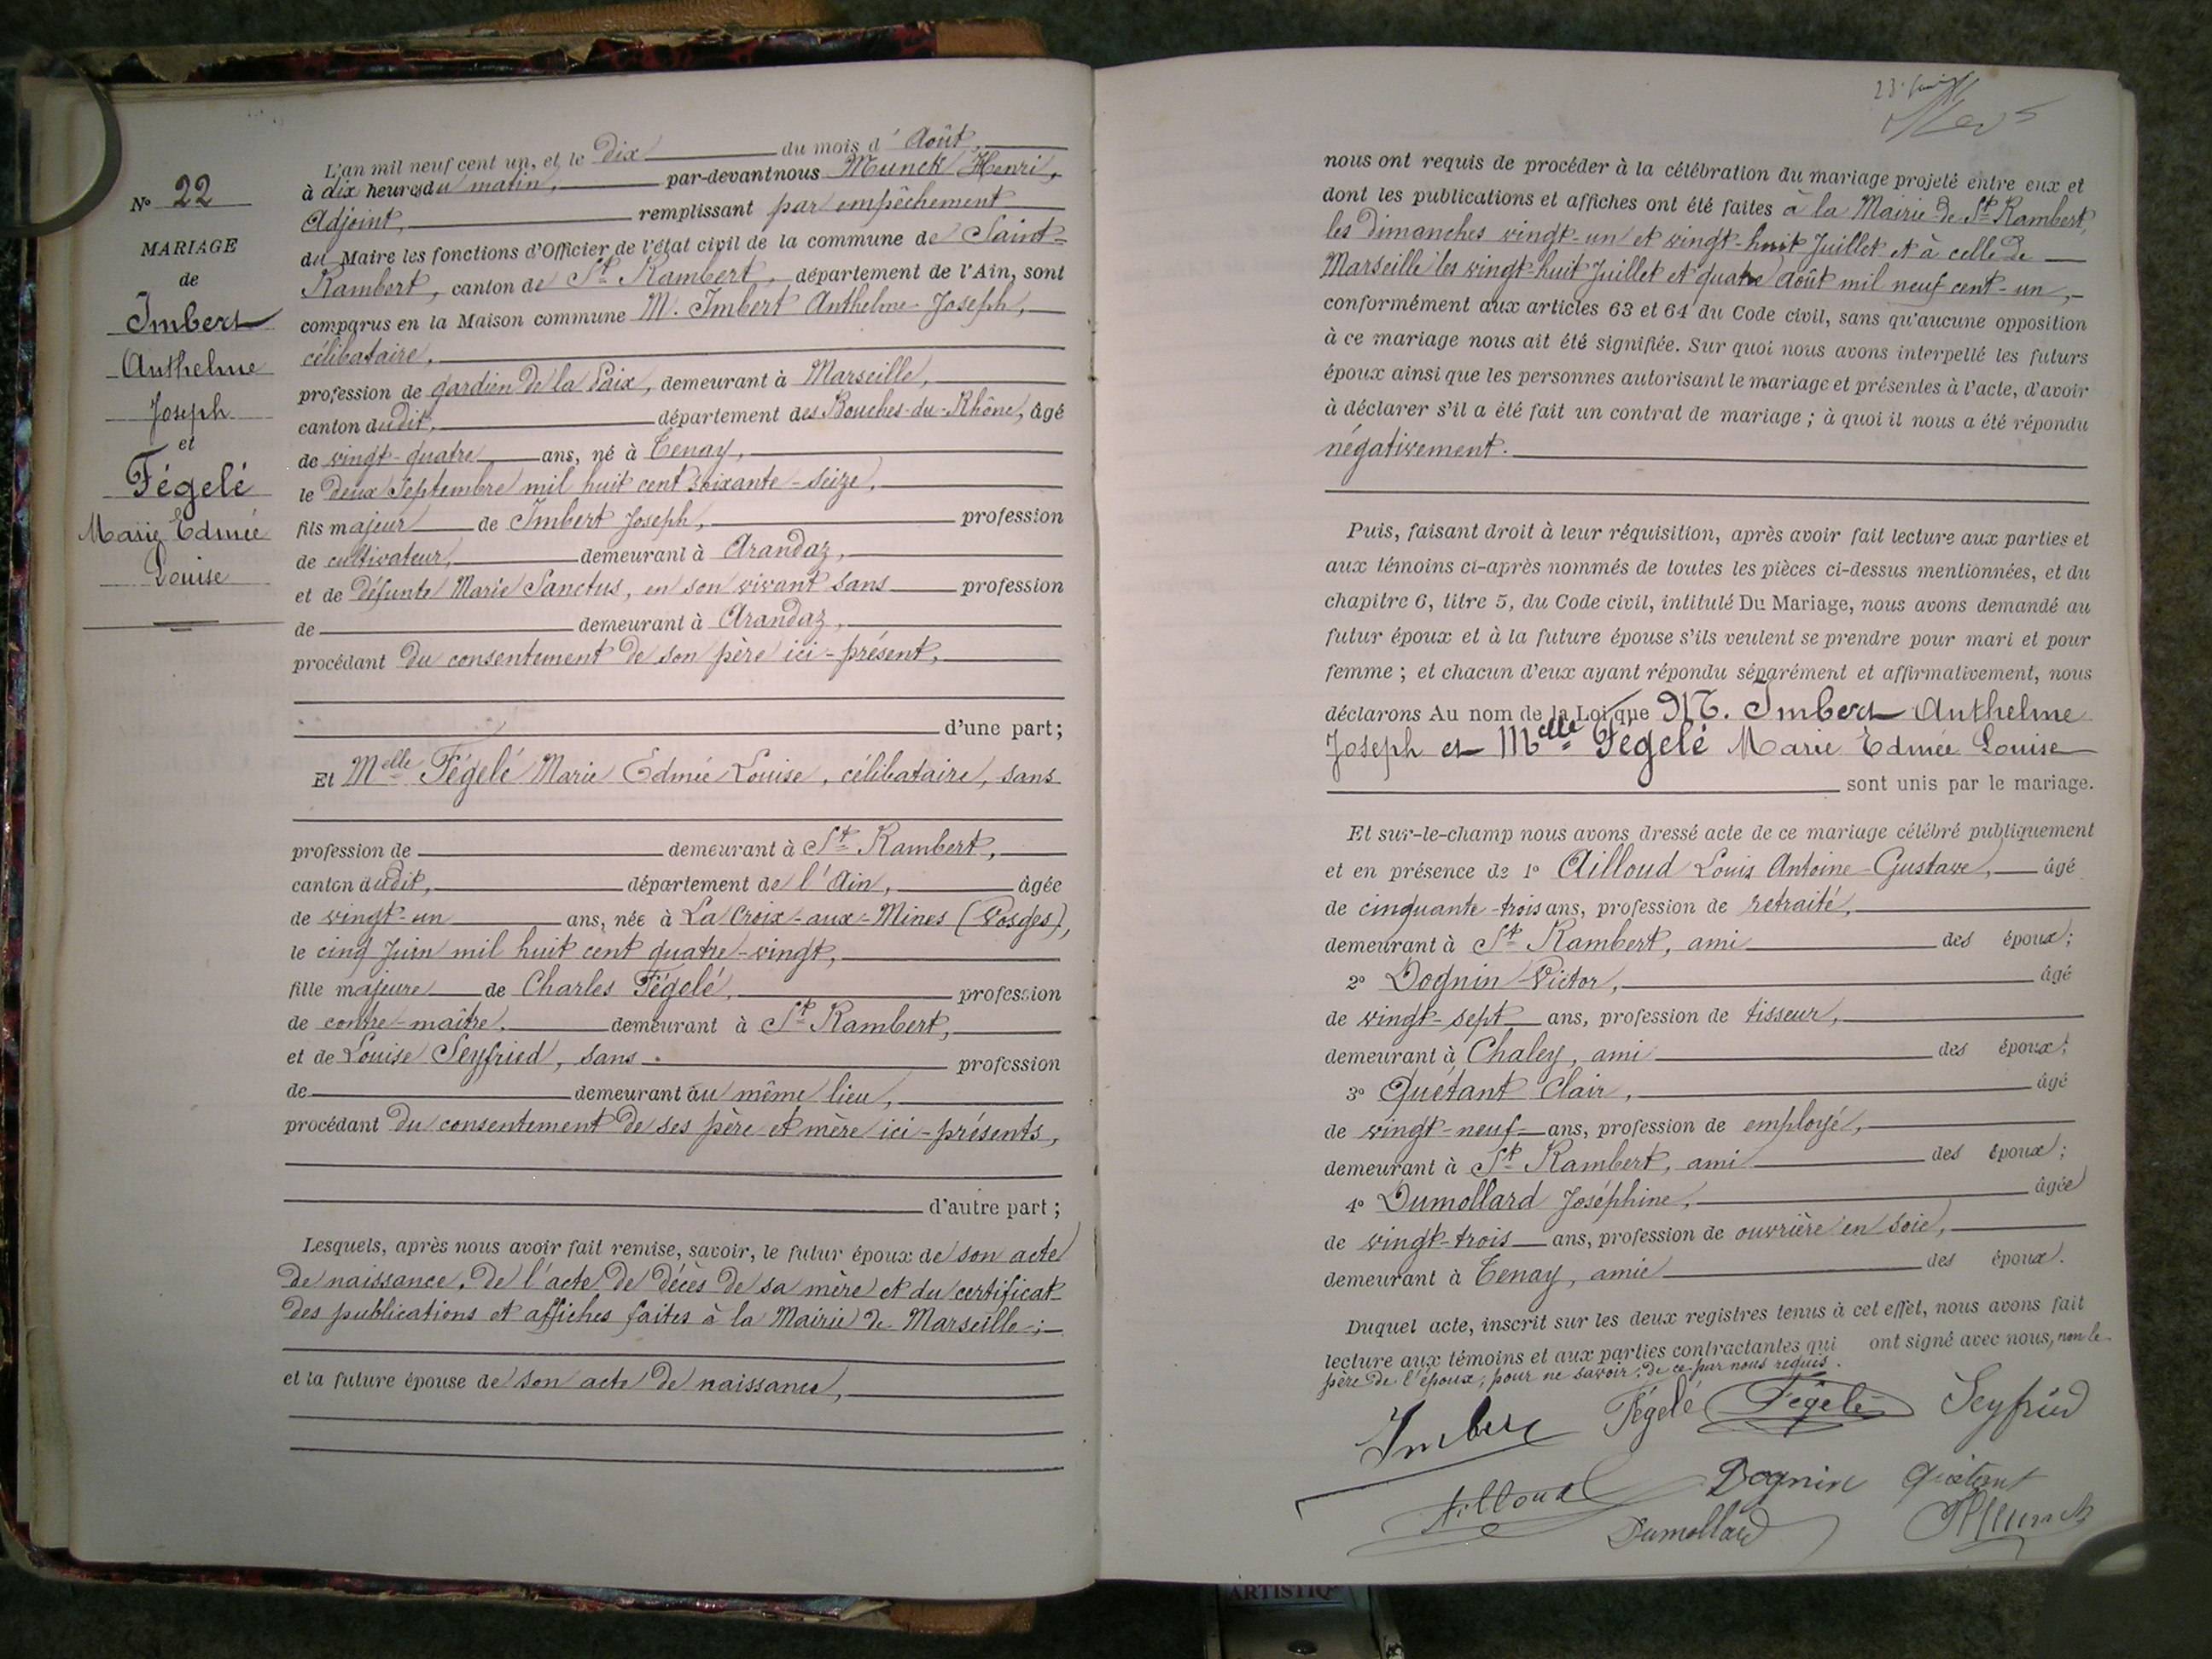 N° 22
MARIAGE
de
Imbert
Anthelme
Joseph
et
Fégelé
Marie Edmée
Louise
L'an mil neuf cent un, et le dix du mois d'Août,
à dix heures du matin, par-devant nous Munck Henri,
Adjoint, remplissant par empêchement
du Maire les fonctions d'Officier de l'état civil de la commune de Saint-
Rambert, canton de St Rambert, département de l'Ain, sont
comparus en la Maison commune M. Imbert Anthelme Joseph,
célibataire,
profession de gardien de la Paix, demeurant à Marseille,
canton dudit, département des Bouches-du-Rhône, âgé
de vingt-quatre ans, né à Tenay,
le deux Septembre mil huit cent soixante-seize,
fils majeur de Imbert Joseph, profession
de cultivateur, demeurant à Arandaz,
et de défunte Marie Sanctus, en son vivant sans profession
de demeurant à Arandaz,
procédant du consentement de son père ici-présent,
d'une part;
Et Melle Fégelé Marie Edmée Louise, célibataire, sans
profession de demeurant à St Rambert,
canton dudit, département de l'Ain, âgée
de vingt-un ans, née à La Croix-aux-Mines (Vosges),
le cinq Juin mil huit cent quatre-vingt,
fille majeure de Charles Fégelé, profession
de contre-maître, demeurant à St Rambert,
et de Louise Seyfried, sans profession
de demeurant au même lieu,
procédant du consentement de ses père et mère ici-présents,
d'autre part;
Lesquels, après nous avoir fait remise, savoir, le futur époux de son acte
de naissance, de l'acte de décès de sa mère et du certificat
des publications et affiches faites à la Mairie de Marseille;
et la future épouse de son acte de naissance,
nous ont requis de procéder à la célébration du mariage projeté entre eux et
dont les publications et affiches ont été faites à la Mairie de St Rambert,
les dimanches vingt-un et vingt-huit Juillet et à celle de
Marseille les vingt-huit Juillet et quatre Août mil neuf cent-un,
conformément aux articles 63 et 64 du Code civil, sans qu'aucune opposition
à ce mariage nous ait été signifiée. Sur quoi nous avons interpellé les futurs
époux ainsi que les personnes autorisant le mariage et présentes à l'acte, d'avoir
à déclarer s'il a été fait un contrat de mariage; à quoi il nous a été répondu
négativement.
Puis, faisant droit à leur réquisition, après avoir fait lecture aux parties et
aux témoins ci-après nommés de toutes les pièces ci-dessus mentionnées, et du
chapitre 6, titre 5, du Code civil, intitulé Du Mariage, nous avons demandé au
futur époux et à la future épouse s'ils veulent se prendre pour mari et pour
femme; et chacun d'eux ayant répondu séparément et affirmativement, nous
déclarons Au nom de la Loi que M. Imbert Anthelme
Joseph et Melle Fégelé Marie Edmée Louise
sont unis par le mariage.
Et sur-le-champ nous avons dressé acte de ce mariage célébré publiquement
et en présence de 1° Ailloud Louis Antoine-Gustave, âgé
de cinquante-trois ans, profession de retraité,
demeurant à St Rambert, ami des époux;
2° Dognin Victor, âgé
de vingt-sept ans, profession de tisseur,
demeurant à Chaley, ami des époux;
3° Quétant Clair, âgé
de vingt-neuf ans, profession de employé,
demeurant à St Rambert, ami des époux;
4° Dumollard Joséphine, âgée
de vingt-trois ans, profession de ouvrière en soie,
demeurant à Tenay, amie des époux.
Duquel acte, inscrit sur les deux registres tenus à cet effet, nous avons fait
lecture aux témoins et aux parties contractantes qui ont signé avec nous, non le
père de l'époux, pour ne savoir, de ce par nous requis.
Imbert Fégelé Fégelé Seyfried
Ailloud Dognin Quétant
Dumollard HMunck
ARTISTIQ